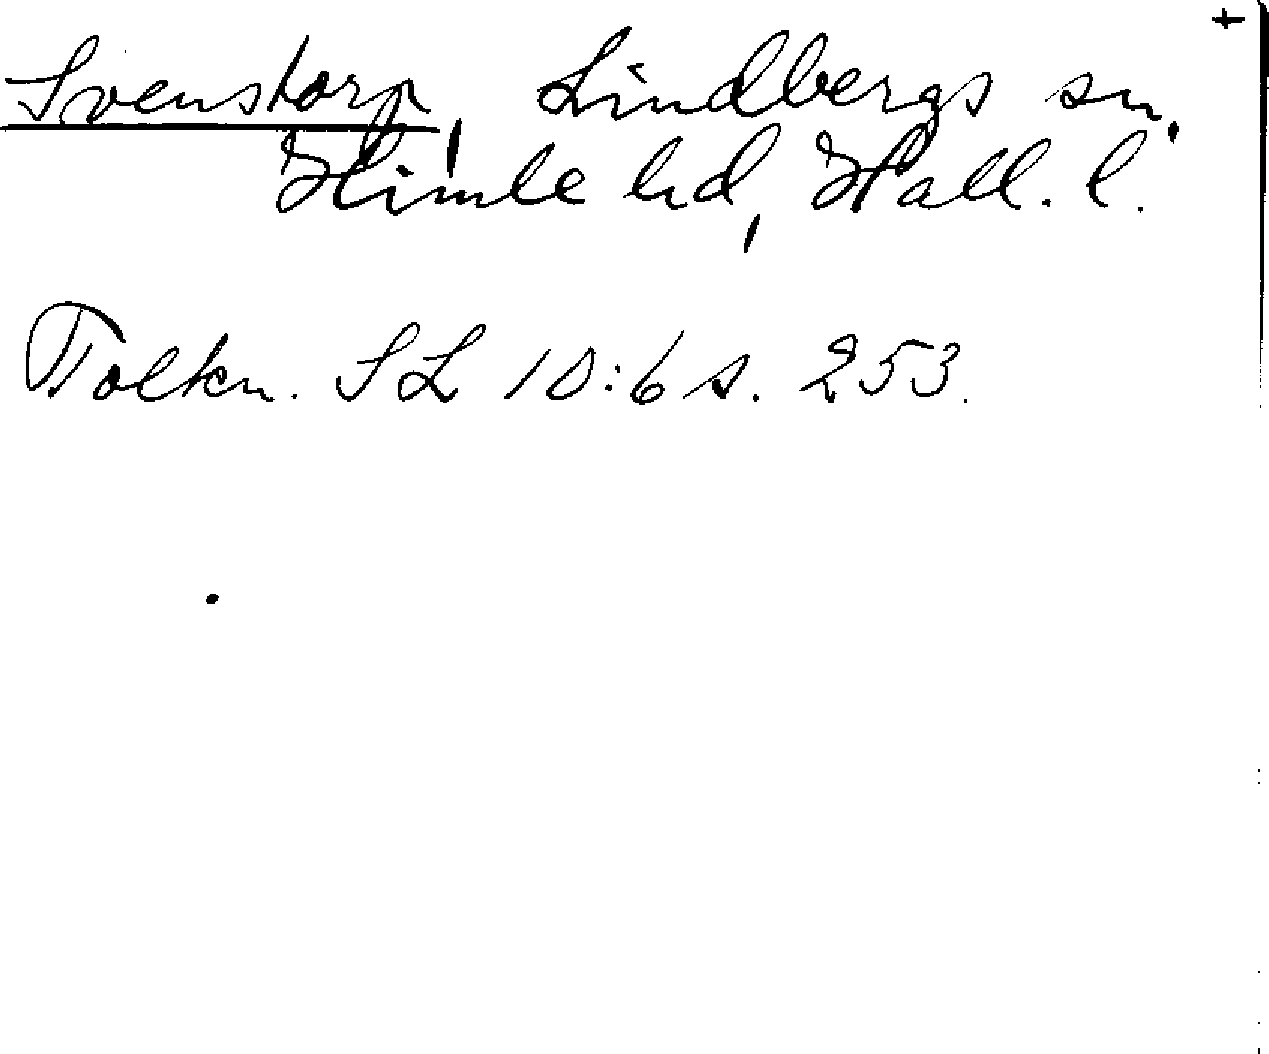 +
Svenstorp, Lindbergs sn,
Himle hd, Hall. l.
Tolkn. SL 10:6 s. 253.